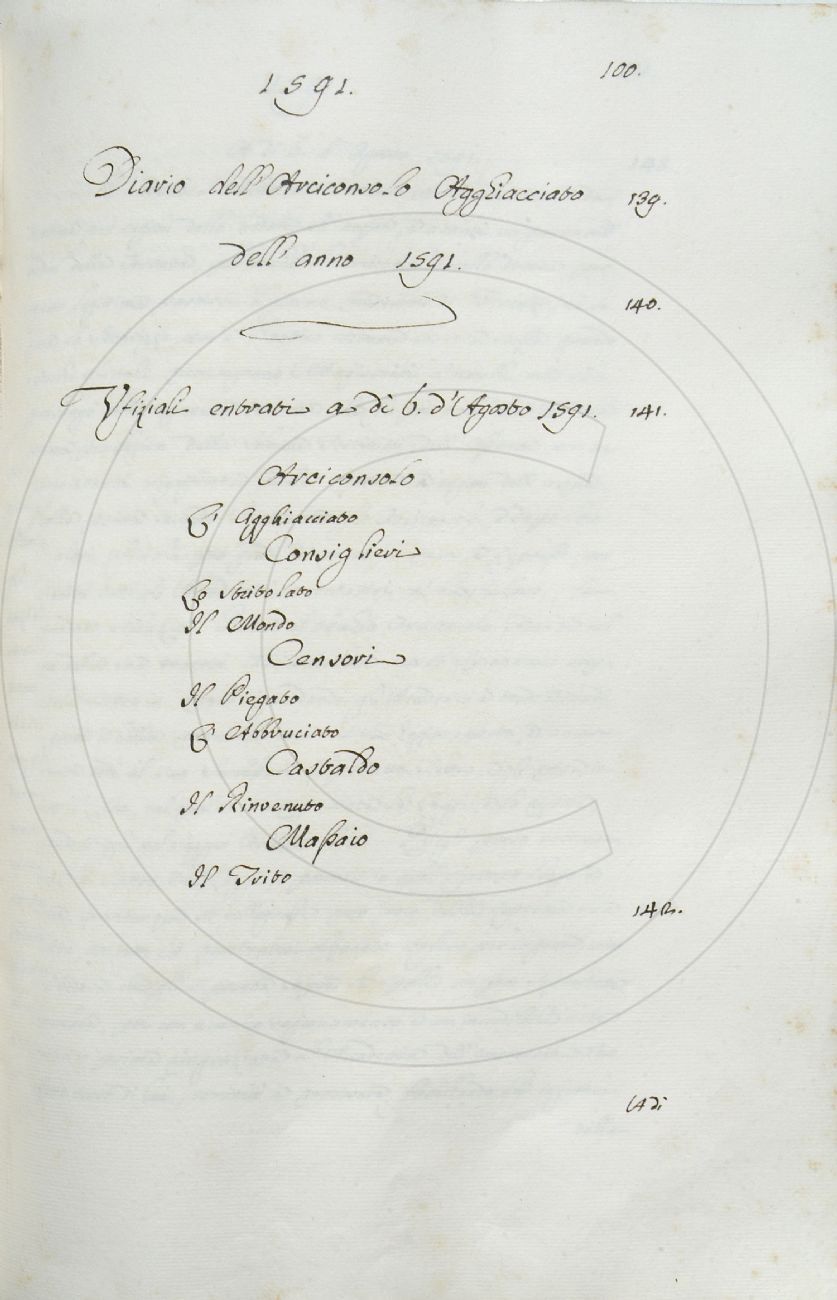 100.
1591.
Diario dell'Arciconsolo Agghiacciato 139.
dell'anno 1591.
140.
Vfiziali entrati a dì 6. d'Agosto 1591. 141.
Arciconsolo
L'Agghiacciato
Consiglieri
Lo Stritolato
Il Mondo
Censori
Il Piegato
L'Abbruciato
Castaldo
Il Rinvenuto
Massaio
Il Trito
142.
A dì